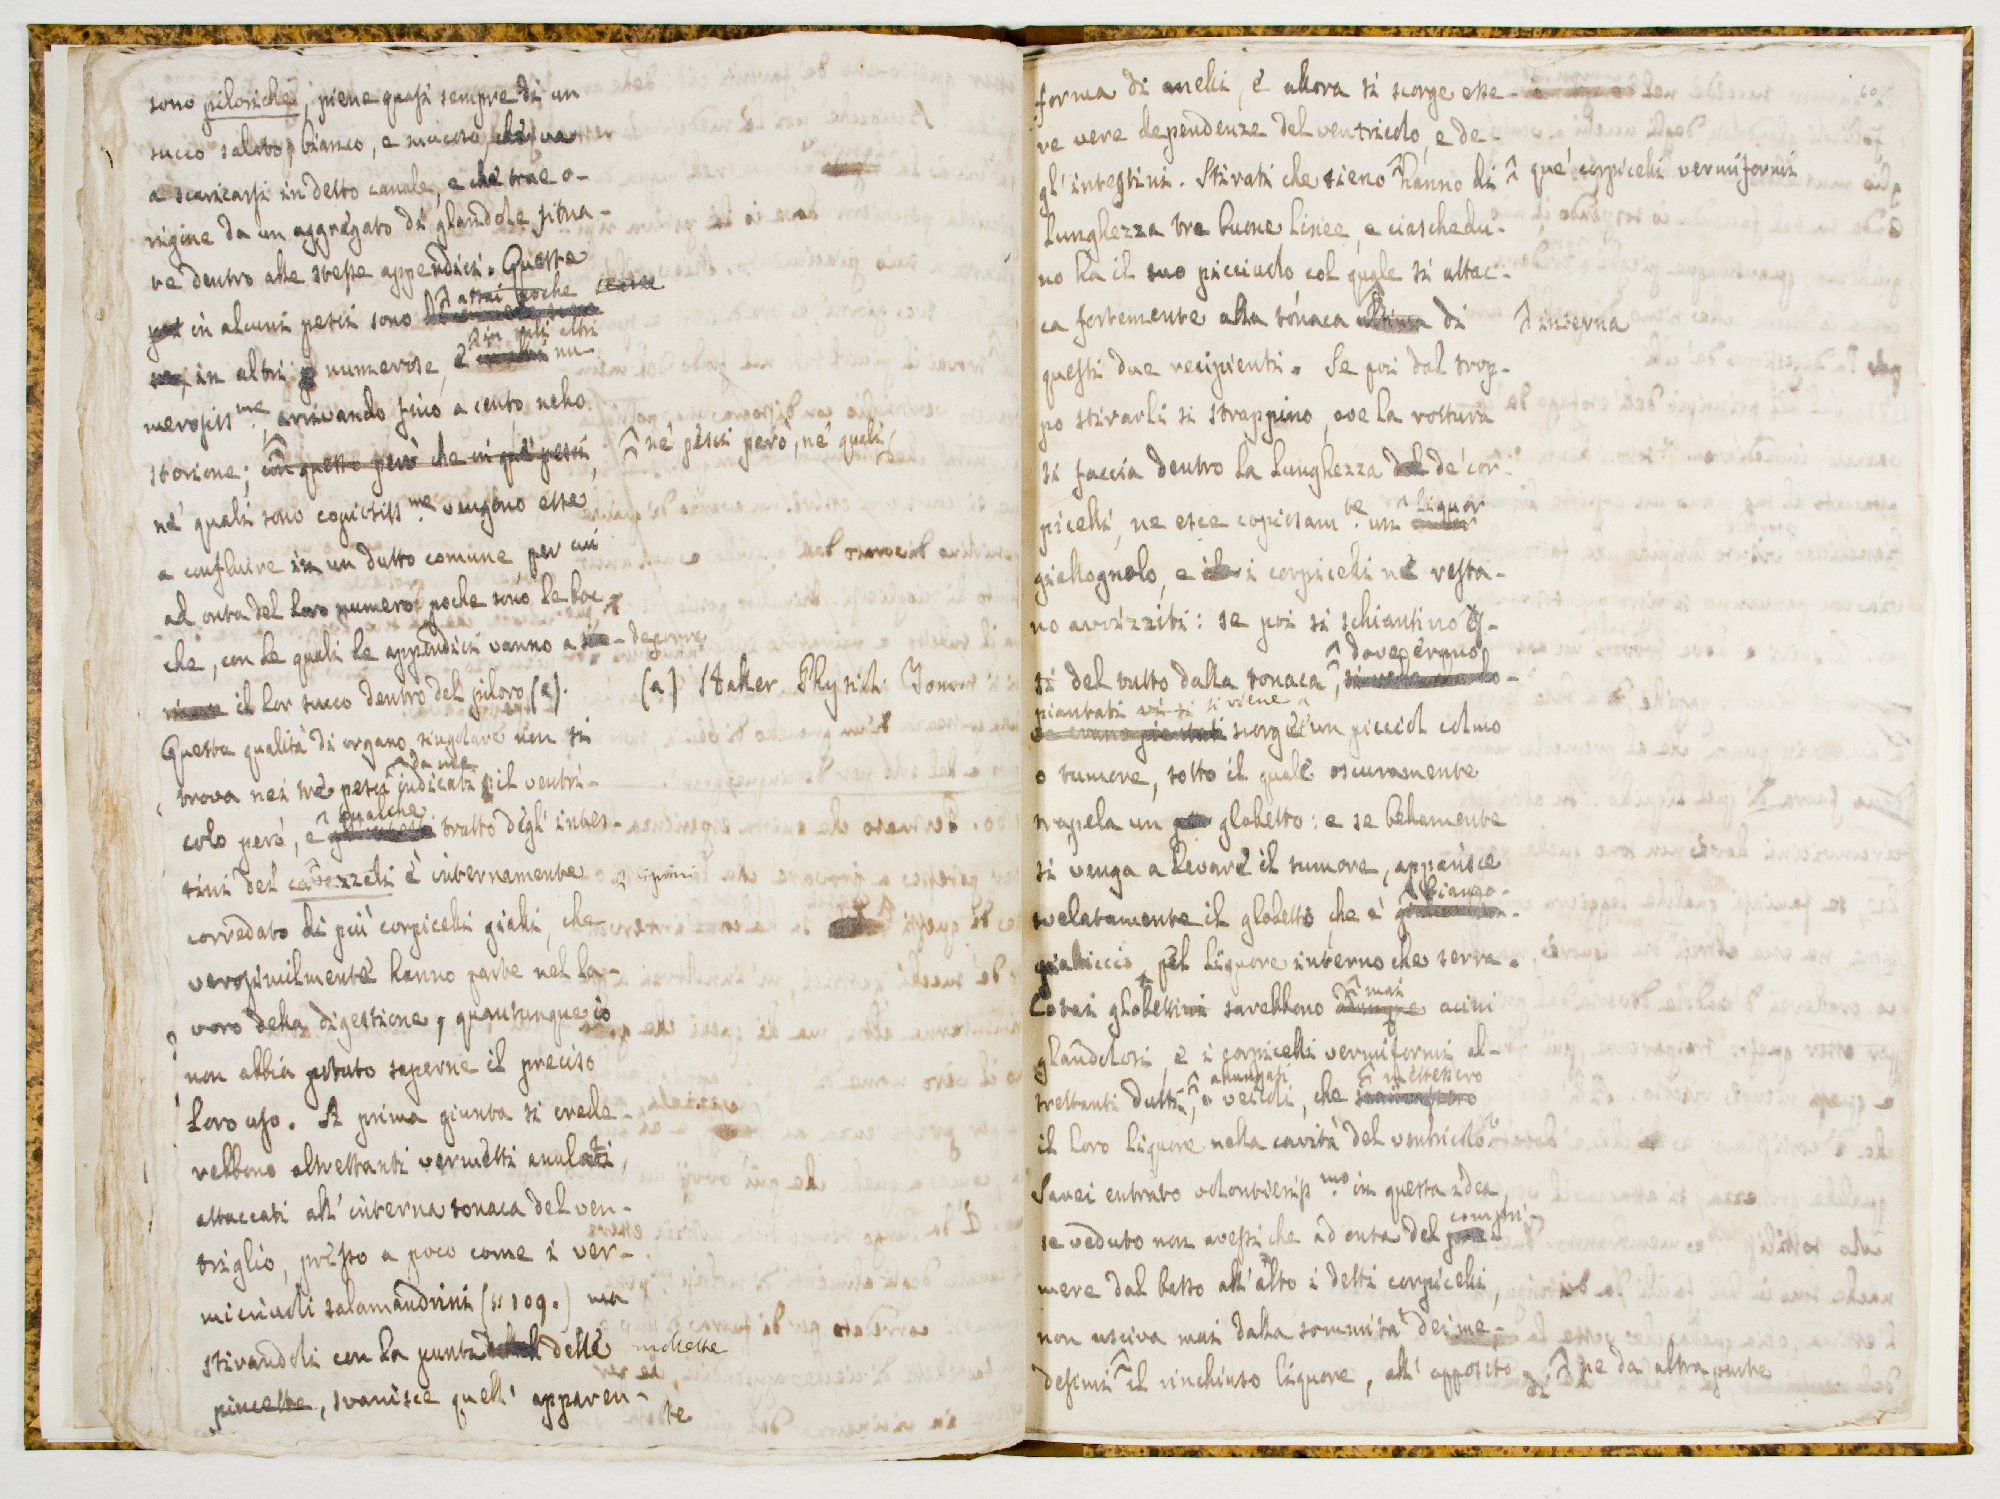 sono piloriche, piene quasi sempre di un
succo salato, bianco, e mucoso, che va
a scaricarsi in detto canale, e che trae o-
rigine da un aggregato di glandole situa-
te dentro alle stesse appendici. Queste
assai poche
in alcuni pesci sono
in altri
in altri numerose, e in altri nu-
merosiss.me, arrivando fino a cento nello
storione; con questo però che in que' pesci, ne' pesci però, ne' quali
ne' quali sono copiosiss.me vengono esse
a confluire in un dutto comune per cui
ad onta del loro numero poche sono le boc-
che, con le quali le appendici vanno a deporre
il lor succo dentro del piloro (a). (a) Haller Physiol. Tom.
Questa qualità di organo singolare non si
da me
trova nei tre pesci indicati; il ventri-
qualche
colo però, e tratto degl' intes-
tini del cavezzali è internamente
corredato di più corpicelli gialli, che
verosimilmente hanno parte nel la-
voro della digestione, quantunque io
non abbia potuto saperne il preciso
loro uso. A prima giunta si crede-
rebbono altrettanti vermetti anulati,
attaccati all' interna tonaca del ven-
triglio, presso a poco come i ver-
micciuoli salamandrini (n 109.) ma
stirandoli con la punta delle mollette
pincette, svanisce quell' apparen-
te
60
forma di anelli, e allora si scorge esse-
re vere dependenze del ventricolo, e de-
gl' intestini. Stirati che sieno hanno di que' corpicelli vermiformi
lunghezza tre buone linee, e ciaschedu-
no ha il suo picciuolo col quale si attac-
ca fortemente alla tonaca ultima di interna
questi due recipienti. Se poi dal trop-
po stirarli si strappino, ove la rottura
si faccia dentro la lunghezza de' cor-
liquor
picelli, ne esce copiosam.te un
giallognolo, e i corpicelli ne resta-
no avvizziti: se poi si schiantino es-
dov' erano
si del tutto dalla tonaca,
piantati si viene a
scorgere un picciol colmo
o tumore, sotto il quale oscuramente
trapela un globetto: e se bellamente
si venga a levare il tumore, apparisce
biango-
svelatamente il globetto, che è
gialliccio pel liquore interno che serra.
mai
Cotesi globettini sarebbono adunque acini
glandolosi, e i corpicelli vermiformi al-
allungati mettessero
trettanti dutti, o vescoli, che
il loro liquore nella cavità del ventricolo?
Sarei entrato volontieriss.mo in questa idea,
compri-
se veduto non avessi che ad onta del
mere dal basso all' alto i detti corpicelli,
non usciva mai dalla sommità dei me-
desimi il rinchiuso liquore, all' opposto di ne da altra parte